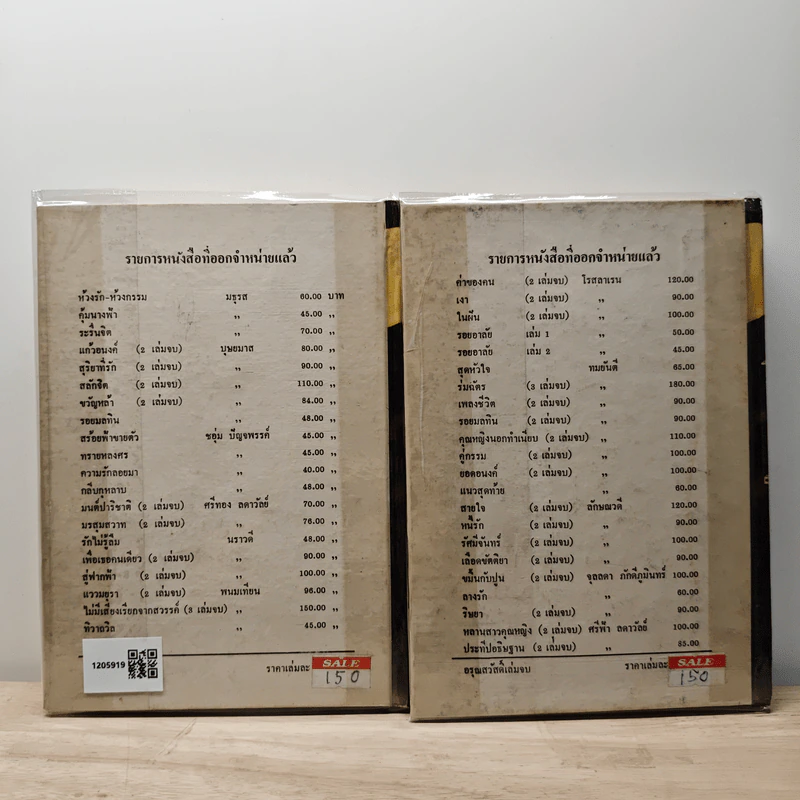 รายการหนังสือที่ออกจำหน่ายแล้ว
ห้วงรัก-ห้วงกรรม มธุรส 60.00 บาท
คุ้มนางฟ้า ,, 45.00 ,,
ระรื่นจิต ,, 70.00 ,,
แก้วอนงค์ (2 เล่มจบ) บุษยมาส 80.00 ,,
สุริยาที่รัก (2 เล่มจบ) ,, 90.00 ,,
สลักจิต (2 เล่มจบ) ,, 110.00 ,,
ขวัญหล้า (2 เล่มจบ) ,, 84.00 ,,
รอยมลทิน ,, 48.00 ,,
สร้อยฟ้าขายตัว ชอุ่ม ปัญจพรรค์ 45.00 ,,
ทรายหลงศร ,, 45.00 ,,
ความรักลอยมา ,, 40.00 ,,
กลีบกุหลาบ ,, 48.00 ,,
มนต์ปาริชาติ (2 เล่มจบ) ศรีทอง ลดาวัลย์ 70.00 ,,
มรสุมสวาท (2 เล่มจบ) ,, 76.00 ,,
รักไม่รู้ลืม นราวดี 48.00 ,,
เพื่อเธอคนเดียว (2 เล่มจบ) ,, 90.00 ,,
สู่ฟากฟ้า (2 เล่มจบ) ,, 100.00 ,,
แววมยุรา (2 เล่มจบ) พนมเทียน 96.00 ,,
ไม่มีเสียงเรียกจากสวรรค์ (3 เล่มจบ) ,, 150.00 ,,
ทิวาถวิล ,, 45.00 ,,
1205919
ราคาเล่มละ SALE
150
รายการหนังสือที่ออกจำหน่ายแล้ว
ค่าของคน (2 เล่มจบ) โรสลาเรน 120.00
เงา (2 เล่มจบ) ,, 90.00
ในฝัน (2 เล่มจบ) ,, 100.00
รอยอาลัย เล่ม 1 ,, 50.00
รอยอาลัย เล่ม 2 ,, 45.00
สุดหัวใจ ทมยันตี 65.00
ร่มฉัตร (3 เล่มจบ) ,, 180.00
เพลงชีวิต (2 เล่มจบ) ,, 90.00
รอยมลทิน (2 เล่มจบ) ,, 90.00
คุณหญิงนอกทำเนียบ (2 เล่มจบ) ,, 110.00
คู่กรรม (2 เล่มจบ) ,, 100.00
ยอดอนงค์ (2 เล่มจบ) ,, 100.00
แนวสุดท้าย ,, 60.00
สายใจ (2 เล่มจบ) ลักษณวดี 120.00
หนี้รัก (2 เล่มจบ) ,, 90.00
รัศมีจันทร์ (2 เล่มจบ) ,, 100.00
เลือดขัตติยา (2 เล่มจบ) ,, 90.00
ขมิ้นกับปูน (2 เล่มจบ) จุลลดา ภักดีภูมินทร์ 100.00
ลางรัก ,, 60.00
ริษยา (2 เล่มจบ) ,, 90.00
หลานสาวคุณหญิง (2 เล่มจบ) ศรีฟ้า ลดาวัลย์ 100.00
ประทีปอธิษฐาน (2 เล่มจบ) ,, 85.00
อรุณสวัสดิ์เล่มจบ ราคาเล่มละ SALE
150